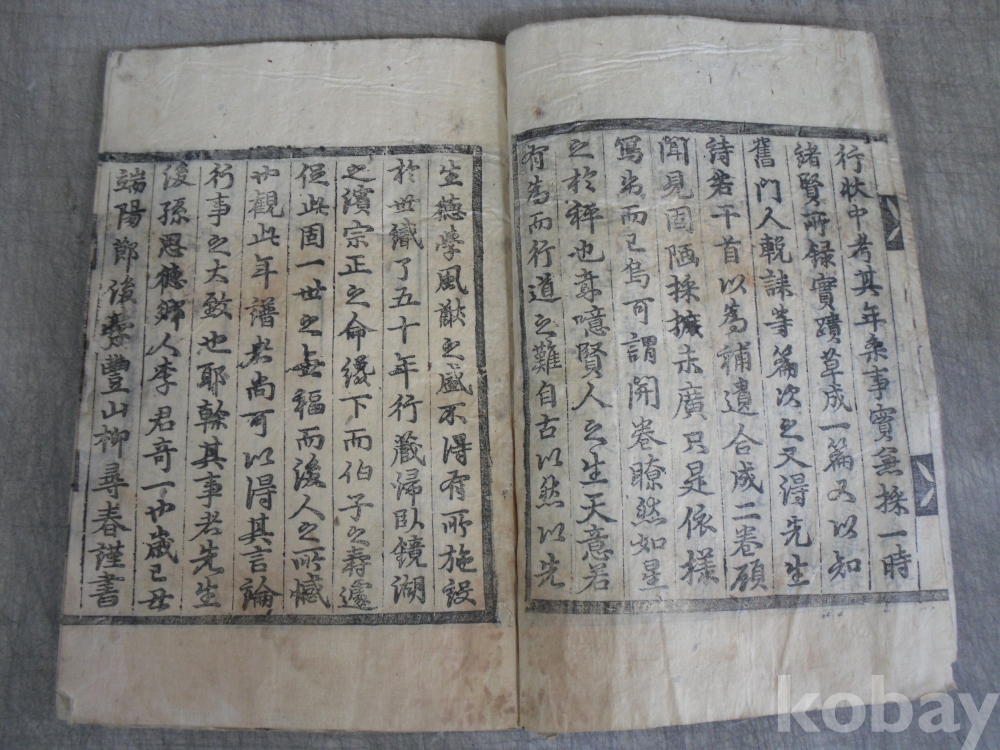 行狀中考其年系事實無採一時
緖賢所録實蹟草成一篇又以知
舊門人輓誄等篇次之又得先生
詩若干首以為補遺合成二卷碩
聞見固陋採摭未廣只是依樣
寫出而已烏可謂開卷瞭然如星
之於稗也尊噫賢人之生天意若
有為而行道之難自古以然以先
生德學風猷之盛不得有所施設
於世識了五十年行藏歸臥鏡湖
之濱宗正之命纔下而伯子之壽遽
促此固一世之無福而後人之所憾
也觀此年譜者尚可以得其言論
行事之大致也耶幹其事者先生
後孫思德鄉人李君奇一也歲己丑
端陽節後學豐山柳尋春謹書
kobay